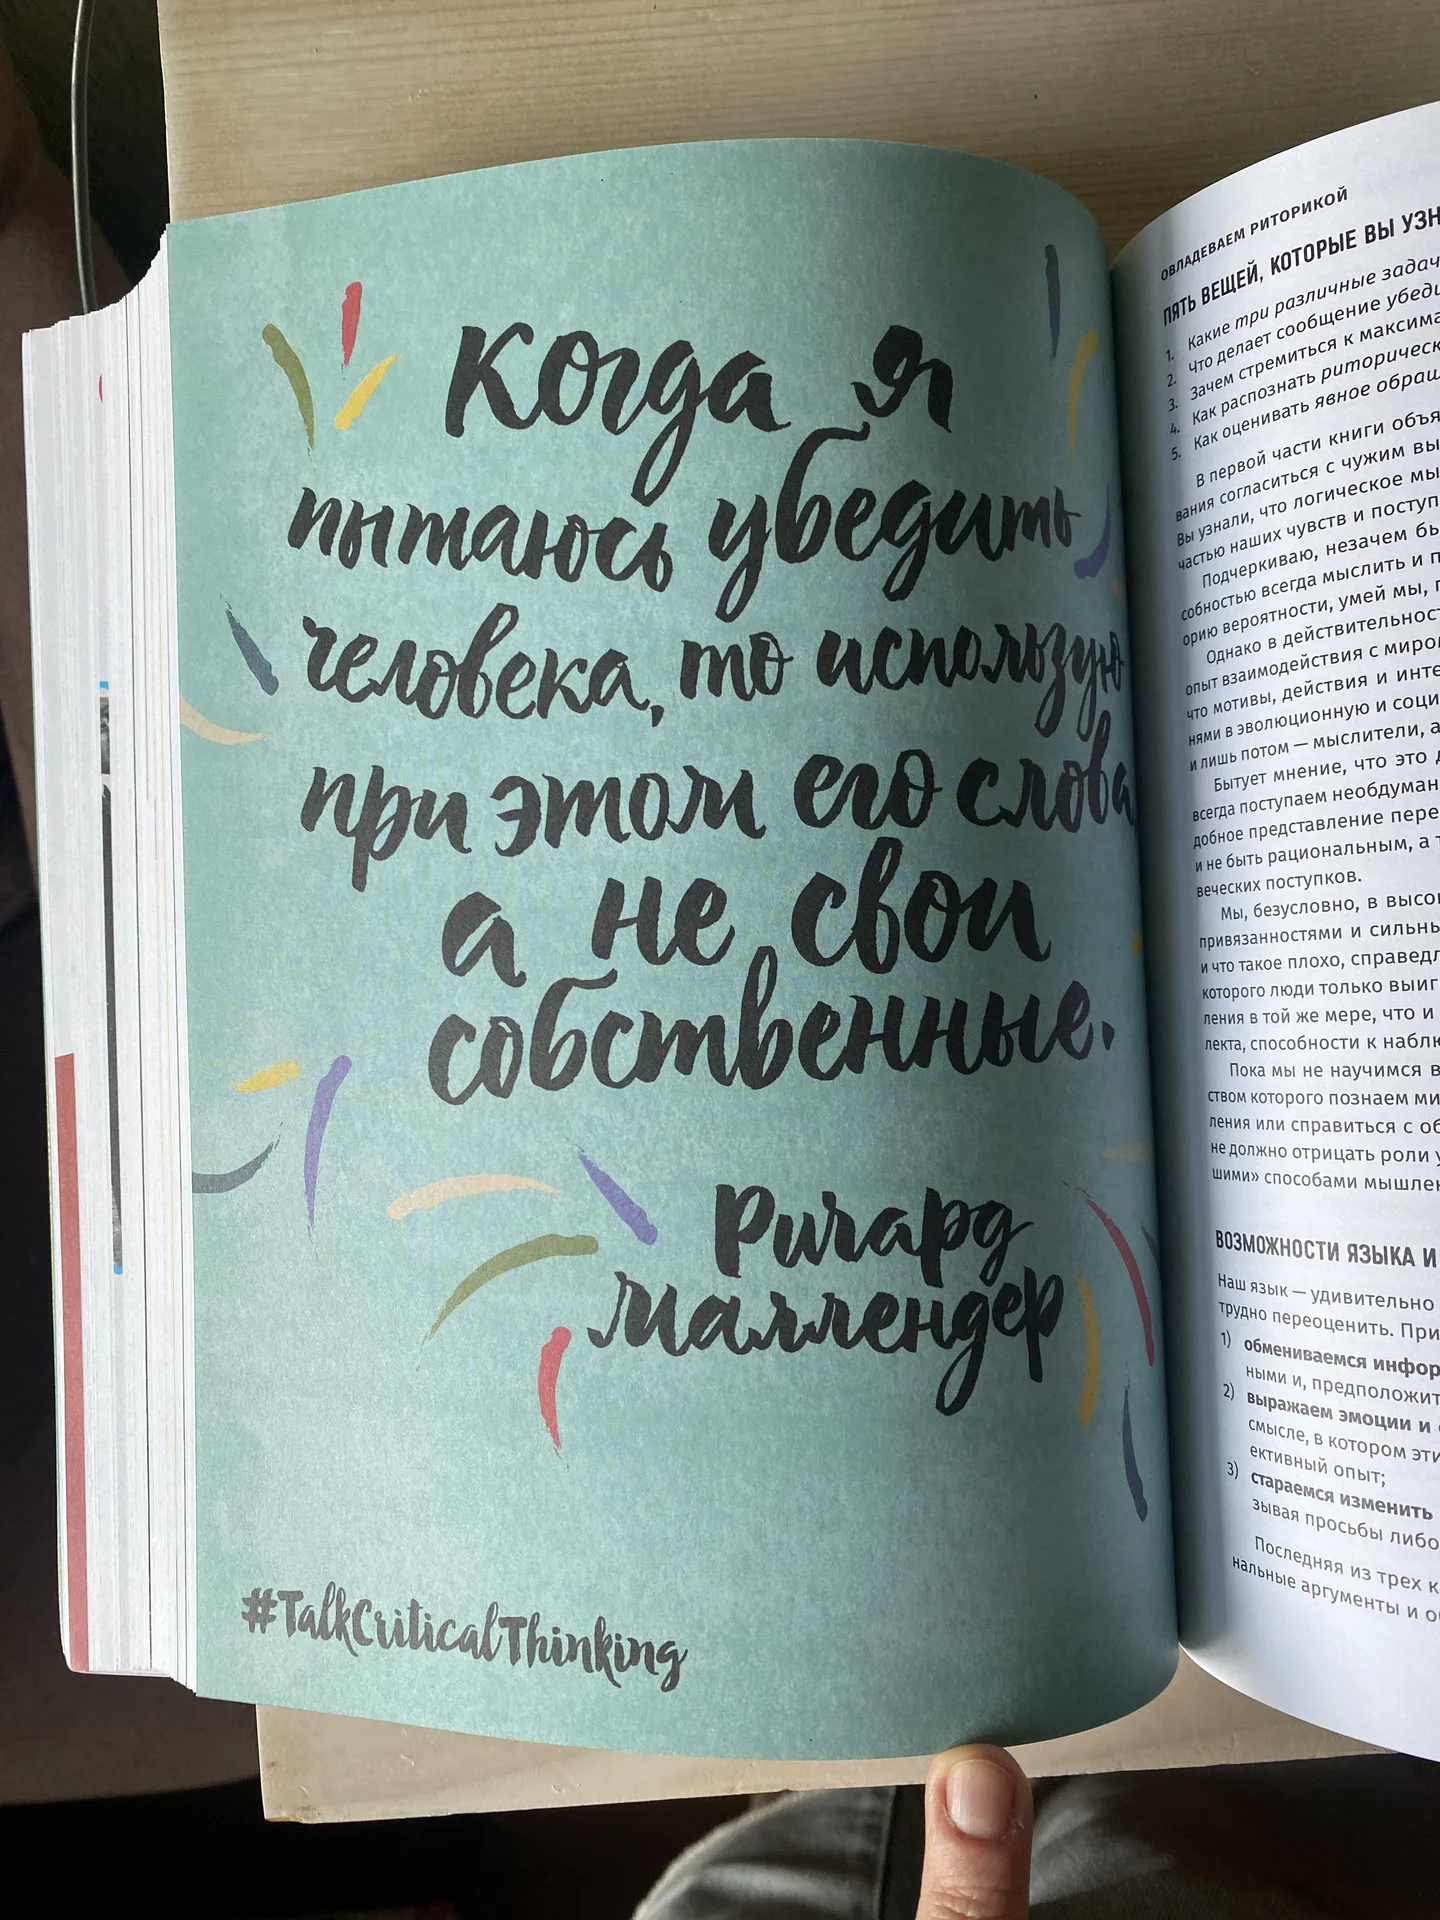 Когда я
пытаюсь убедить
человека, то использую
при этом его слова
а не свои
собственные.
Ричард
Маллендер
#TalkCriticalThinking
ОВЛАДЕВАЕМ РИТОРИКОЙ
ПЯТЬ ВЕЩЕЙ, КОТОРЫЕ ВЫ УЗН
1. Какие три различные задач
2. Что делает сообщение убеди
3. Зачем стремиться к максима
4. Как распознать риторическ
5. Как оценивать явное обращ
В первой части книги объя
вания согласиться с чужим вы
Вы узнали, что логическое мы
частью наших чувств и поступ
Подчеркиваю, незачем бы
собностью всегда мыслить и п
орию вероятности, умей мы, г
Однако в действительност
опыт взаимодействия с миром
что мотивы, действия и инте
нями в эволюционную и соци
и лишь потом — мыслители, а
Бытует мнение, что это д
всегда поступаем необдуман
добное представление пере
и не быть рациональным, а т
веческих поступков.
Мы, безусловно, в высо
привязанностями и сильны
и что такое плохо, справедл
которого люди только выиг
ления в той же мере, что и
лекта, способности к наблю
Пока мы не научимся в
ством которого познаем ми
ления или справиться с об
не должно отрицать роли у
шими» способами мышлен
ВОЗМОЖНОСТИ ЯЗЫКА И
Наш язык — удивительно
трудно переоценить. При
1) обмениваемся инфор
ными и, предположит
2) выражаем эмоции и
смысле, в котором эти
ективный опыт;
3) стараемся изменить
зывая просьбы либо
Последняя из трех к
нальные аргументы и о